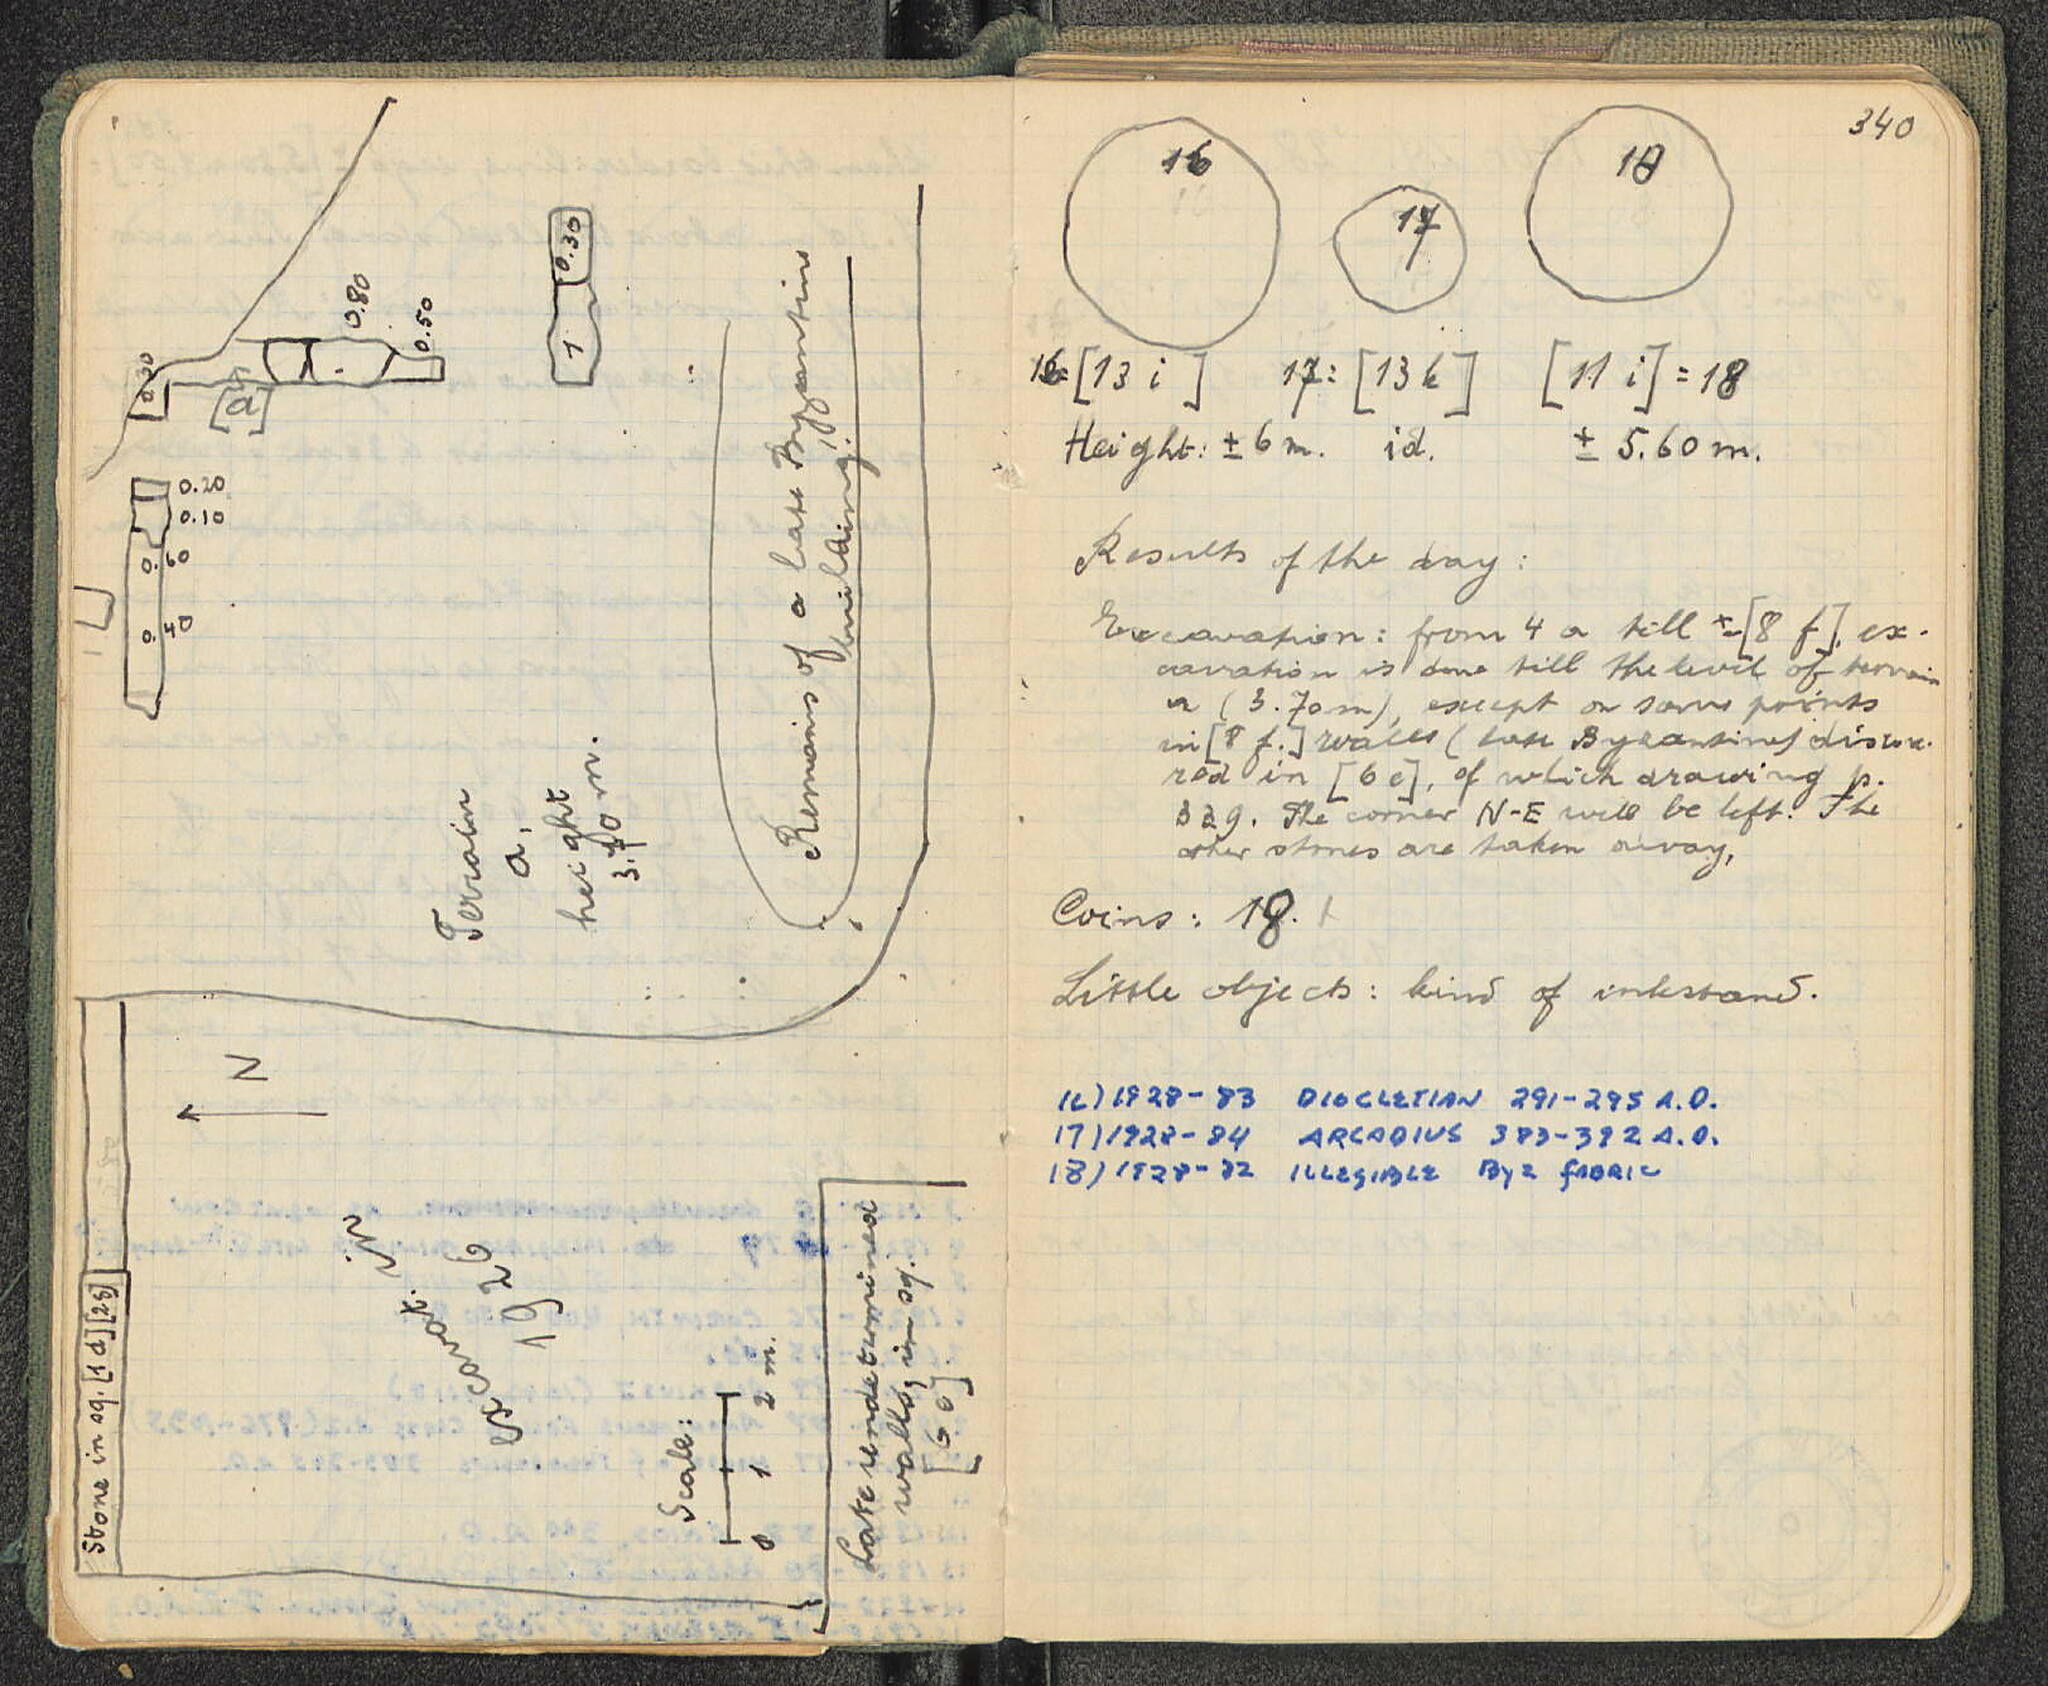 0.30
0.80
0.50
[a]
1
0.30
0.20
0.10
0.60
0.40
Terrain
a,
height
3.70 m.
Remains of a late Byzantine
building!
N
Stone in sq. [1 d] [2g]
excavat. in
1926
Scale:
0 1 2 m.
Late undetermined
walls, in sq.
[6 e].
340
16
17
18
16= [13 i] 17: [13 k] [11 i] = 18
Height: ± 6 m. id. ± 5.60 m.
Results of the day:
Excavation: from 4 a till ± [8 f], ex-
cavation is done till the level of terrain
a (3.70 m), except on some points
in [8 f.] walls (late Byzantine) discove-
red in [6 e], of which drawing p.
339. The corner N-E will be left. The
other stones are taken away,
Coins: 18.
Little objects: kind of inkstand.
16) 1928-83 DIOCLETIAN 291-295 A.D.
17) 1928-84 ARCADIUS 383-392 A.D.
18) 1928-82 ILLEGIBLE BYZ FABRIC